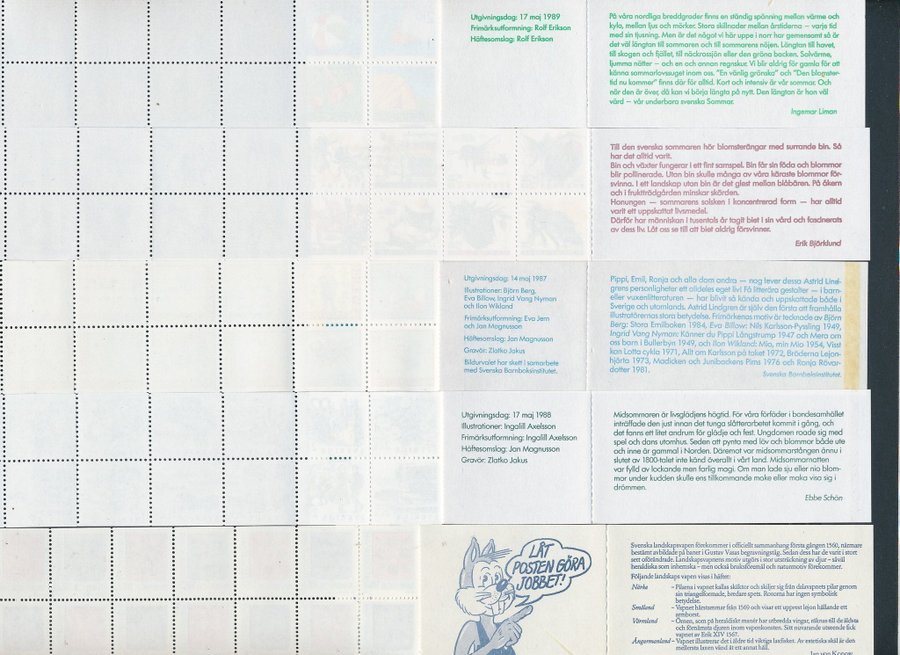 Utgivningsdag: 17 maj 1989
Frimärksutformning: Rolf Erikson
Häftesomslag: Rolf Erikson
På våra nordliga breddgrader finns en ständig spänning mellan värme och
kyla, mellan ljus och mörker. Stora skillnader mellan årstiderna — varje tid
med sin tjusning. Men är det något vi här uppe i norr har gemensamt så är
det väl längtan till sommaren och till sommarens nöjen. Längtan till havet,
till skogen och fjället, till näckrosjön eller den gröna backen. Solvärme,
ljumma nätter — och en och annan regnskur. Vi blir aldrig för gamla för att
känna sommarlovssuget inom oss. "En vänlig grönska" och "Den blomster-
tid nu kommer" finns där för alltid. Kort och intensiv är vår sommar. Och
när den är över, då kan vi börja längta på nytt. Den längtan är han väl
värd — vår underbara svenska Sommar.
Ingemar Liman
Till den svenska sommaren hör blomsterängar med surrande bin. Så
har det alltid varit.
Bin och växter fungerar i ett fint samspel. Bin får sin föda och blommor
blir pollinerade. Utan bin skulle många av våra käraste blommor för-
svinna. I ett landskap utan bin är det glest mellan blåbären. På åkern
och i fruktträdgården minskar skörden.
Honungen — sommarens solsken i koncentrerad form — har alltid
varit ett uppskattat livsmedel.
Därför har människan i tusentals år tagit biet i sin vård och fascinerats
av dess liv. Låt oss se till att biet aldrig försvinner.
Erik Björklund
Utgivningsdag: 14 maj 1987
Illustrationer: Björn Berg,
Eva Billow, Ingrid Vang Nyman
och Ilon Wikland
Frimärksutformning: Eva Jern
och Jan Magnusson
Häftesomslag: Jan Magnusson
Gravör: Zlatko Jakus
Bildurvalet har skett i samarbete
med Svenska Barnboksinstitutet.
Pippi, Emil, Ronja och alla dom andra — nog lever dessa Astrid Lind-
grens personligheter ett alldeles eget liv! Få litterära gestalter — i barn-
eller vuxenlitteraturen — har blivit så kända och uppskattade både i
Sverige och utomlands. Astrid Lindgren är själv den första att framhålla
illustratörernas stora betydelse. Frimärkenas motiv är tecknade av Björn
Berg: Stora Emilboken 1984, Eva Billow: Nils Karlsson-Pyssling 1949,
Ingrid Vang Nyman: Känner du Pippi Långstrump 1947 och Mera om
oss barn i Bullerbyn 1949, och Ilon Wikland: Mio, min Mio 1954, Visst
kan Lotta cykla 1971, Allt om Karlsson på taket 1972, Bröderna Lejon-
hjärta 1973, Madicken och Junibackens Pims 1976 och Ronja Rövar-
dotter 1981.
Svenska Barnboksinstitutet.
Utgivningsdag: 17 maj 1988
Illustrationer: Ingalill Axelsson
Frimärksutformning: Ingalill Axelsson
Häftesomslag: Jan Magnusson
Gravör: Zlatko Jakus
Midsommaren är livsglädjens högtid. För våra förfäder i bondesamhället
inträffade den just innan det tunga slåtterarbetet kommit i gång, och
det fanns ett litet andrum för glädje och fest. Ungdomen roade sig med
spel och dans utomhus. Seden att pynta med löv och blommor både ute
och inne är gammal i Norden. Däremot var midsommarstången ännu i
slutet av 1800-talet inte känd överallt i vårt land. Midsommarnatten
var fylld av lockande men farlig magi. Om man lade sju eller nio blom-
mor under kudden skulle ens tillkommande make eller maka visa sig i
drömmen.
Ebbe Schön
LÅT
POSTEN GÖRA
JOBBET!
Svenska landskapsvapen förekommer i officiellt sammanhang första gången 1560, närmare
bestämt avbildade på baner i Gustav Vasas begravningståg. Sedan dess har de varit i stort
sett oförändrade. Landskapsvapnens motiv utgörs i stor utsträckning av djur – såväl
heraldiska som inhemska – men också bruksföremål och naturmotiv förekommer.
Följande landskaps vapen visas i häftet:
Närke – Pilarna i vapnet kallas skäktor och skiljer sig från dalavapnets pilar genom
sin triangelformade, bredare spets. Rosorna har ingen symbolisk
betydelse.
Småland – Vapnet härstammar från 1569 och visar ett upprest lejon hållande ett
armborst.
Värmland – Örnen, som på heraldiskt manér har utbredda vingar, räknas till de äldsta
och förnämsta djuren inom vapenkonsten. Sitt nuvarande utseende fick
vapnet av Erik XIV 1567.
Ångermanland – Vapnet illustrerar det i äldre tid viktiga laxfisket. Av estetiska skäl är den
mellersta laxen vänd åt ett annat håll.